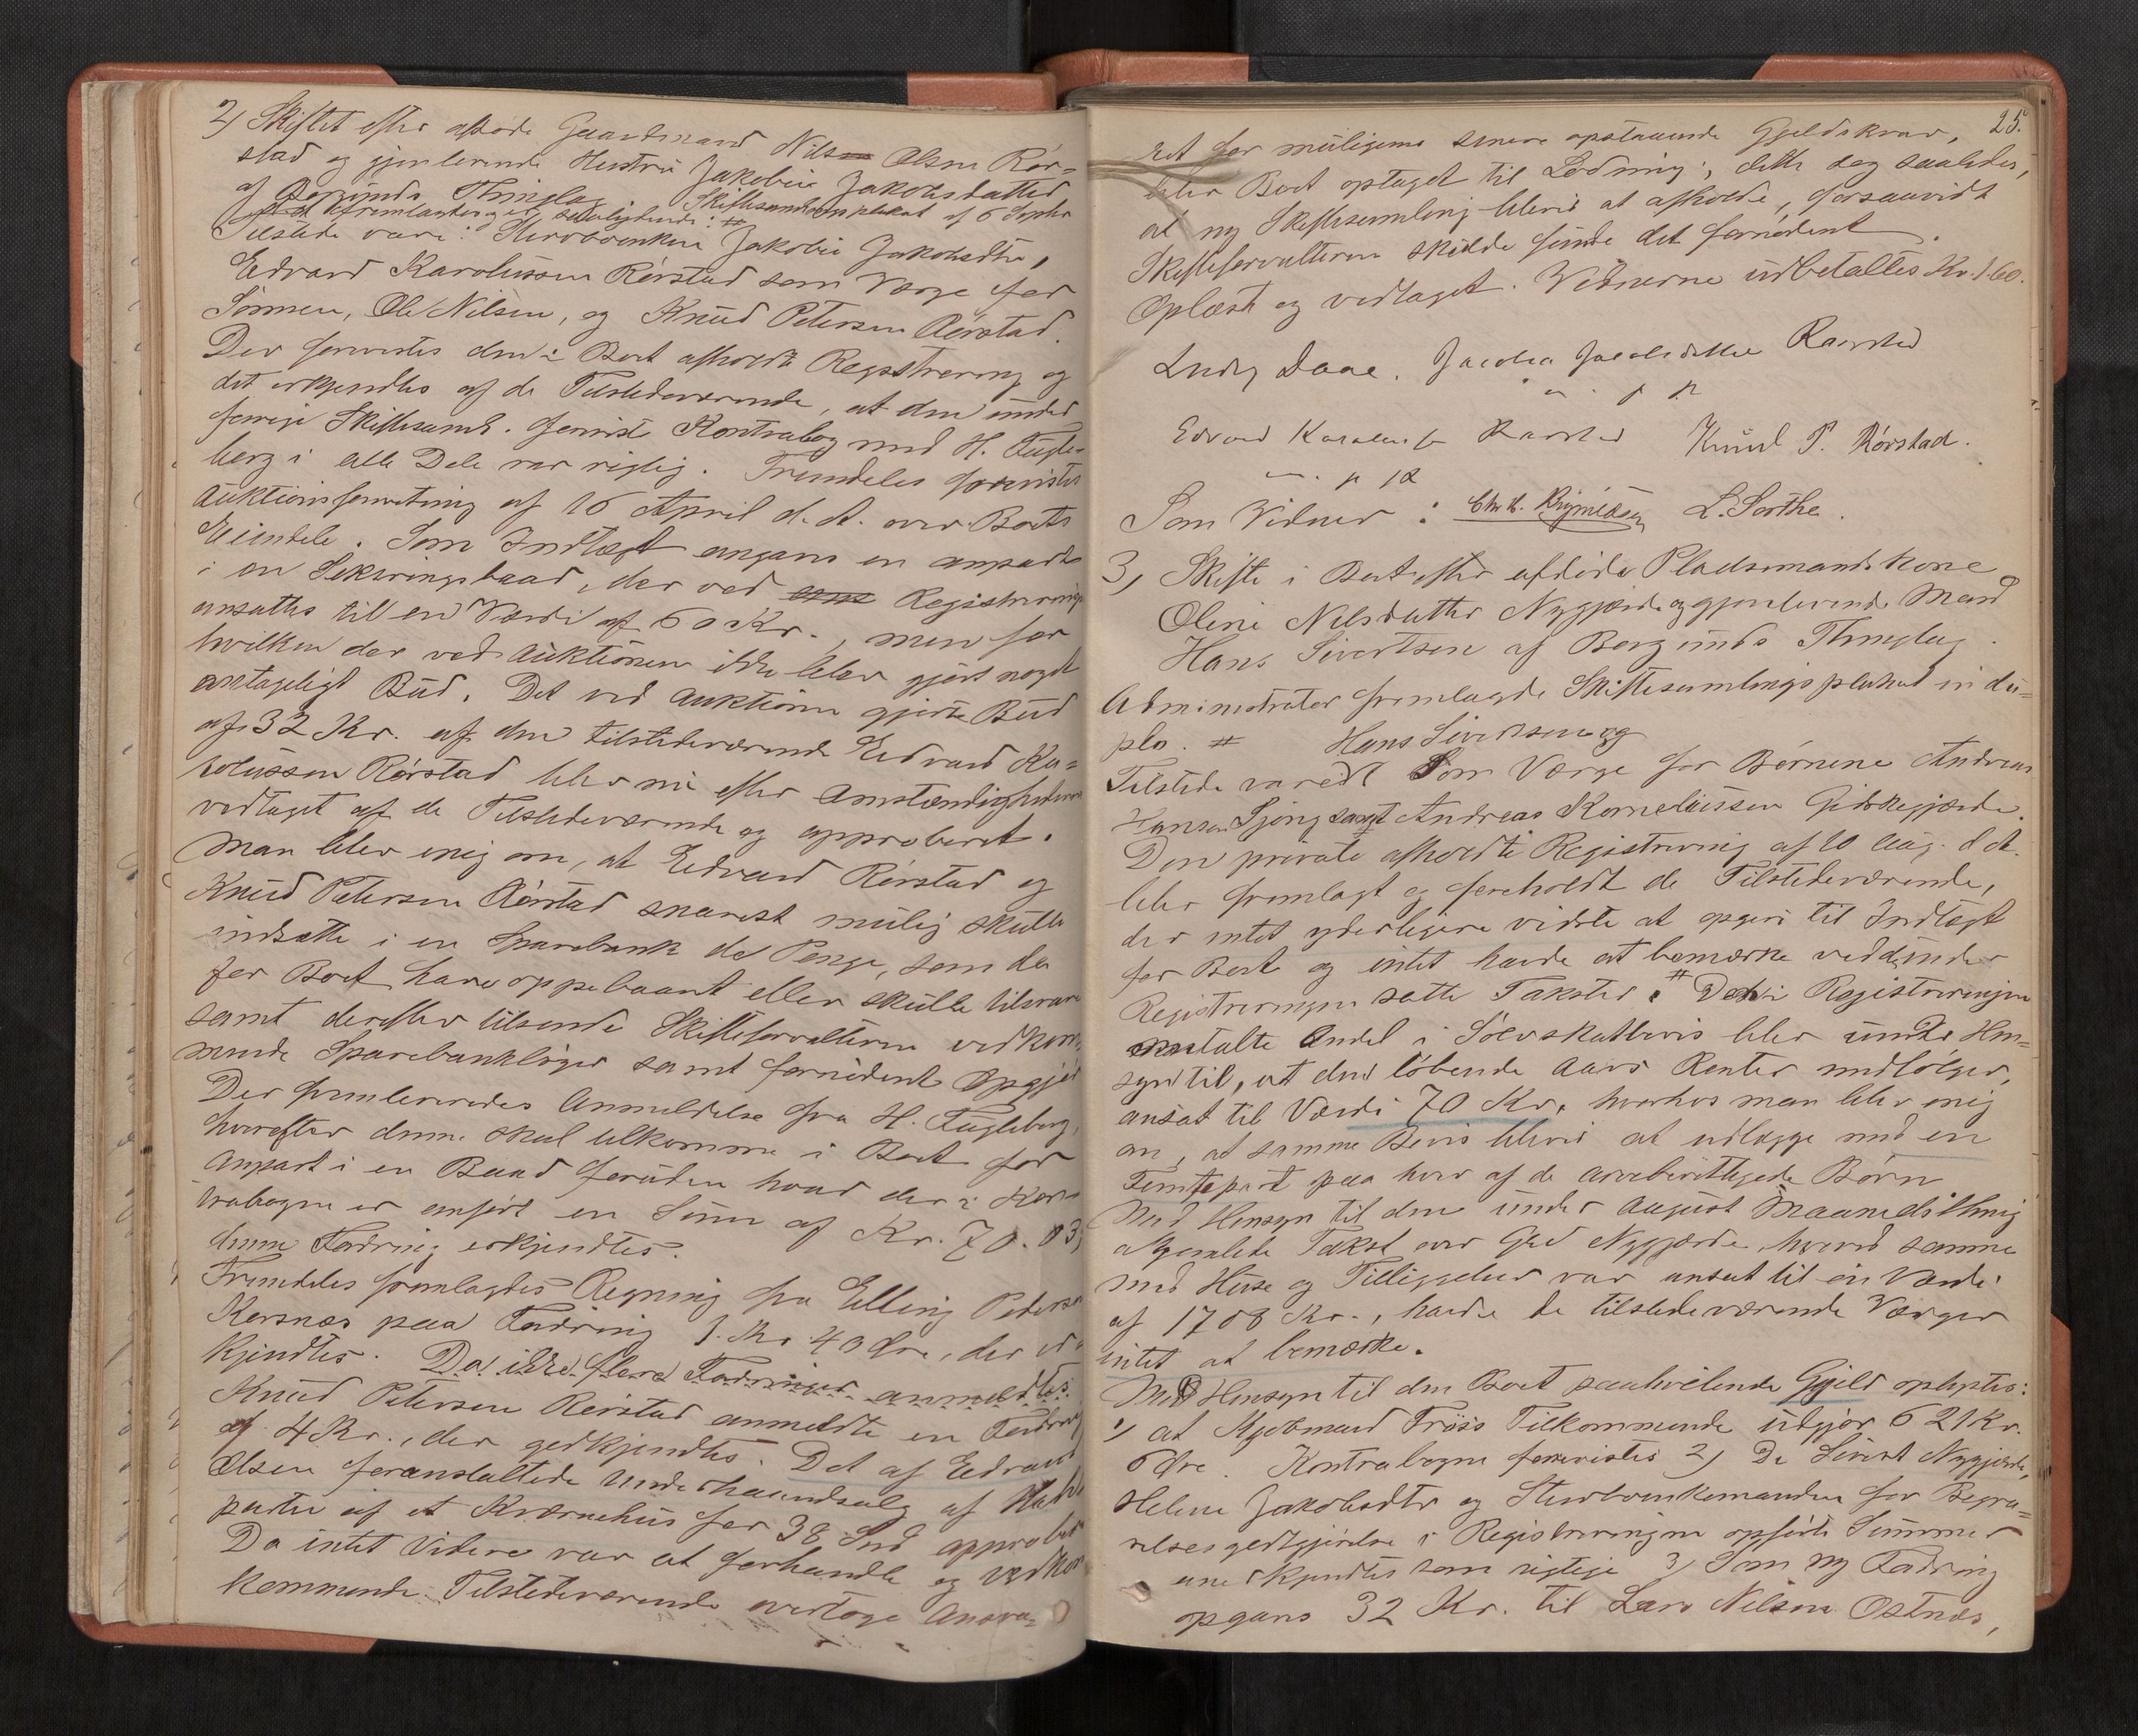 2) Skiftet efter afdøde Gaardmand Nils Olsen Rør=
stad og gjenlevende Hustru Jakobia Jakobsdatter
af Borgunds Thinglag. Skiftesamlingsplakat af 6 Septbr
fremlagdes saalydende: #
Tilstede vare: Stervboenken Jakobia Jakobsdtr,
Edvard Karolussen Rørstad som Værge for
Sønnen, Ole Nilsen, og Knud Petersen Rørstad.
Der forevistes den i Boet afholdte Registrering og
det erkjendtes af de Tilstedeværende, at den under
forrige Skiftesaml. foreviste Kontrabog med H. Fugle=
berg i alle Dele var rigtig. Fremdeles forevistes
Auktionsforretning af 16 April d. A. over Boets
Eiendele. Som Indtægt angaves en anpart
i en Sekringsbaad, der ved Registrering
ansattes til en Værdi af 60 Kr., men for
hvilken der ved Auktionen ikke blev gjort noget
antageligt Bud. Det ved Auktionen gjorte Bud
af 32 Kr. af den tilstedeværende Edvard Ka=
rolussen Rørstad blev nu efter Omstændighederne
vedtaget af de Tilstedeværende og approberet.
Man blev enig om, at Edvard Rørstad og
Knud Petersen Rørstad snarest mulig skulle
indsætte i en Sparebank de Penge, som de
for Boet have oppebaaret eller skulle tilsvare
samt derefter tilsende Skifteforvalteren vedkom=
mende Sparebankbøger samt fornødent Opgjør
Der fremleveredes Anmeldelse fra H. Fugleberg,
hvorefter denne skal tilkomme i Boet for
Anpart i en Baad foruden hvad der i Kon=
trabogen er anført en Sum af Kr. 70.03,
denne Fordring erkjendtes.
Fremdeles fremlagdes Regning fra Elling Petersen
Korsnæs paa Fordring 1 Kr 40 Øre, der er=
kjendtes. Da ikke flere Fordringer anmeldtes.
Knud Petersen Rørstad anmeldte en Fordring
af 4 Kr., der godkjendtes. Det af Edvard
Olsen foranstaltede Underhaandsalg af
parten af et Kværnehus for 38 approbertes
Da intet Videre var at forhandle og vedkom=
kommende Tilstedeværende overtoge Ansva=
25.
ret for muligens senere opstaaende Gjeldskrav,
blev Boet optaget til Lodning, dette dog saaledes,
at ny Skiftesamling bliver at afholde, forsaavidt
Skifteforvalteren skulde finde det fornødent.
Oplæst og vedtaget. Vidnerne udbetaltes Kr. 1.60.
Ludv Daae. Jacobia Jacobsdatter Raarsted
m. p. p.
Edvard Karolus Raarsted Knud P. Rørstad.
m. p. p.
Som Vidner: L. Sørthe.
3, Skifte i Boet efter afdøde Pladsmandskone
Oline Nilsdatter Nygjærde og gjenlevende Mand
Hans Sivertsen af Borgunds Thinglag.
Administrator fremlagde Skiftesamlingsplakat in du=
plo. # Hans Sivertsen og
Tilstede vare Som Værge for Børnene Andreas
Hansen samt Andreas Korneliussen Gidskegjærde.
Den private afholdte Registrering af 10 Aug. d. A.
blev fremlagt og foreholdt de Tilstedeværende,
der intet yderligere vidste at opgive til Indtægt
for Boet og intet havde at bemærke ved de under
Registreringen satte Takster. # Den i Registreringen
omtalte Andel i Sølvskatbevis blev under Hen=
syn til, at den løbende Aars Renter medfølger,
ansat til Værdi 70 Kr., hvorhos man blev enig
om, at samme Bevis bliver at udlægge med en
Femtepart paa hver af de arveberettigede Børn
Med Hensyn til den under August Maanedsthing
afhjemlede Takst over Gd Nygjærde, hvorved samme
med Huse og Tilliggelser var ansat til en Værdi
af 1708 Kr., havde de tilstedeværende Værger
intet at bemærke.
Med Hensyn til den Boet paahvilende Gjeld oplystes:
1) at Kjøbmand Trøis Tilkommende udgjør 621 Kr.
6 Øre. Kontrabogen forevistes 2) De Sivert Nygjærde,
Helene Jakobsdtr og Stervboenkemanden for Begra=
velsesgodtgjørelse i Registreringen opførte Summer
anerkjendtes som rigtige 3) Som ny Fordring
opgaves 32 Kr. til Lars Nilsen Ostnes,